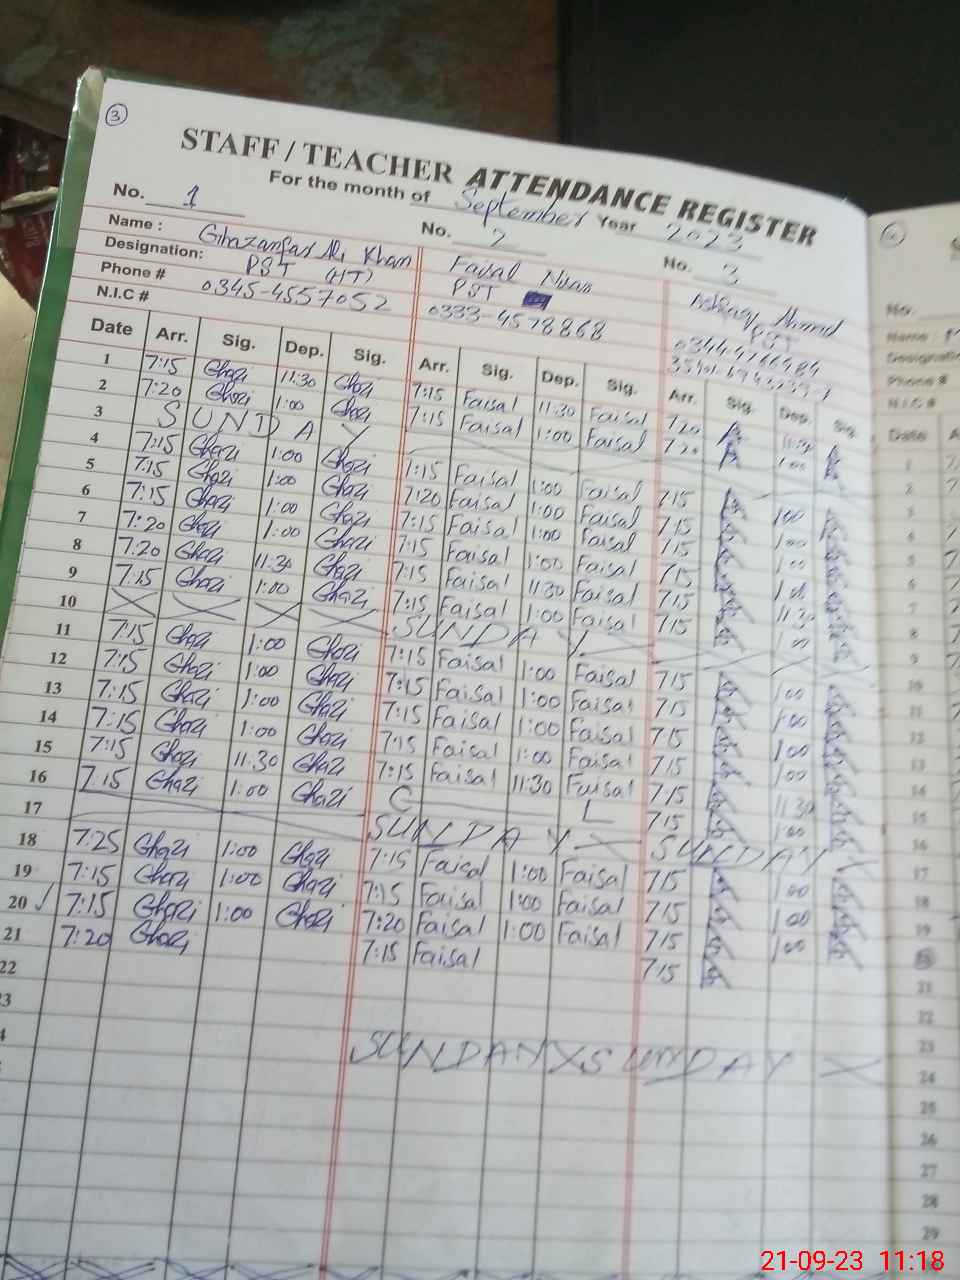 3
STAFF / TEACHER ATTENDANCE REGISTER
For the month of September Year 2023
No. 1 No. 2 No. 3
Name : Ghazanfar Ali Khan Faisal Ashfaq Ahmad
Designation: PST (HT) PST PST
Phone # 0345-4557052 0333-4578868
N.I.C #
Date Arr. Sig. Dep. Sig. Arr. Sig. Dep. Sig. Arr. Sig. Dep. Sig.
1 7:15 Ghazi 11:30 Ghazi 7:15 Faisal 11:30 Faisal 7:20 11:30
2 7:20 Ghazi 1:00 Ghazi 7:15 Faisal 1:00 Faisal 7:20 1:00
3 SUNDAY
4 7:15 Ghazi 1:00 Ghazi 7:15 Faisal 1:00 Faisal 7:15 1:00
5 7:15 Ghazi 1:00 Ghazi 7:20 Faisal 1:00 Faisal 7:15 1:00
6 7:15 Ghazi 1:00 Ghazi 7:15 Faisal 1:00 Faisal 7:15 1:00
7 7:20 Ghazi 1:00 Ghazi 7:15 Faisal 1:00 Faisal 7:15 1:00
8 7:20 Ghazi 11:30 Ghazi 7:15 Faisal 11:30 Faisal 7:15 11:30
9 7:15 Ghazi 1:00 Ghazi 7:15 Faisal 1:00 Faisal 7:15 1:00
10 SUNDAY
11 7:15 Ghazi 1:00 Ghazi 7:15 Faisal 1:00 Faisal 7:15 1:00
12 7:15 Ghazi 1:00 Ghazi 7:15 Faisal 1:00 Faisal 7:15 1:00
13 7:15 Ghazi 1:00 Ghazi 7:15 Faisal 1:00 Faisal 7:15 1:00
14 7:15 Ghazi 1:00 Ghazi 7:15 Faisal 1:00 Faisal 7:15 1:00
15 7:15 Ghazi 11:30 Ghazi 7:15 Faisal 11:30 Faisal 7:15 11:30
16 7:15 Ghazi 1:00 Ghazi C L 7:15 1:00
17 SUNDAY SUNDAY
18 7:25 Ghazi 1:00 Ghazi 7:15 Faisal 1:00 Faisal 7:15 1:00
19 7:15 Ghazi 1:00 Ghazi 7:15 Faisal 1:00 Faisal 7:15 1:00
20 7:15 Ghazi 1:00 Ghazi 7:20 Faisal 1:00 Faisal 7:15 1:00
21 7:20 Ghazi 7:15 Faisal 7:15
22
SUNDAY SUNDAY
21-09-23 11:18